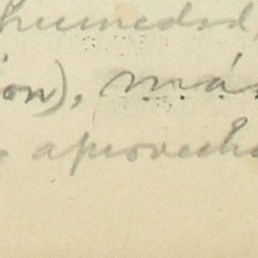 humedad,
ión), más
aprovecha